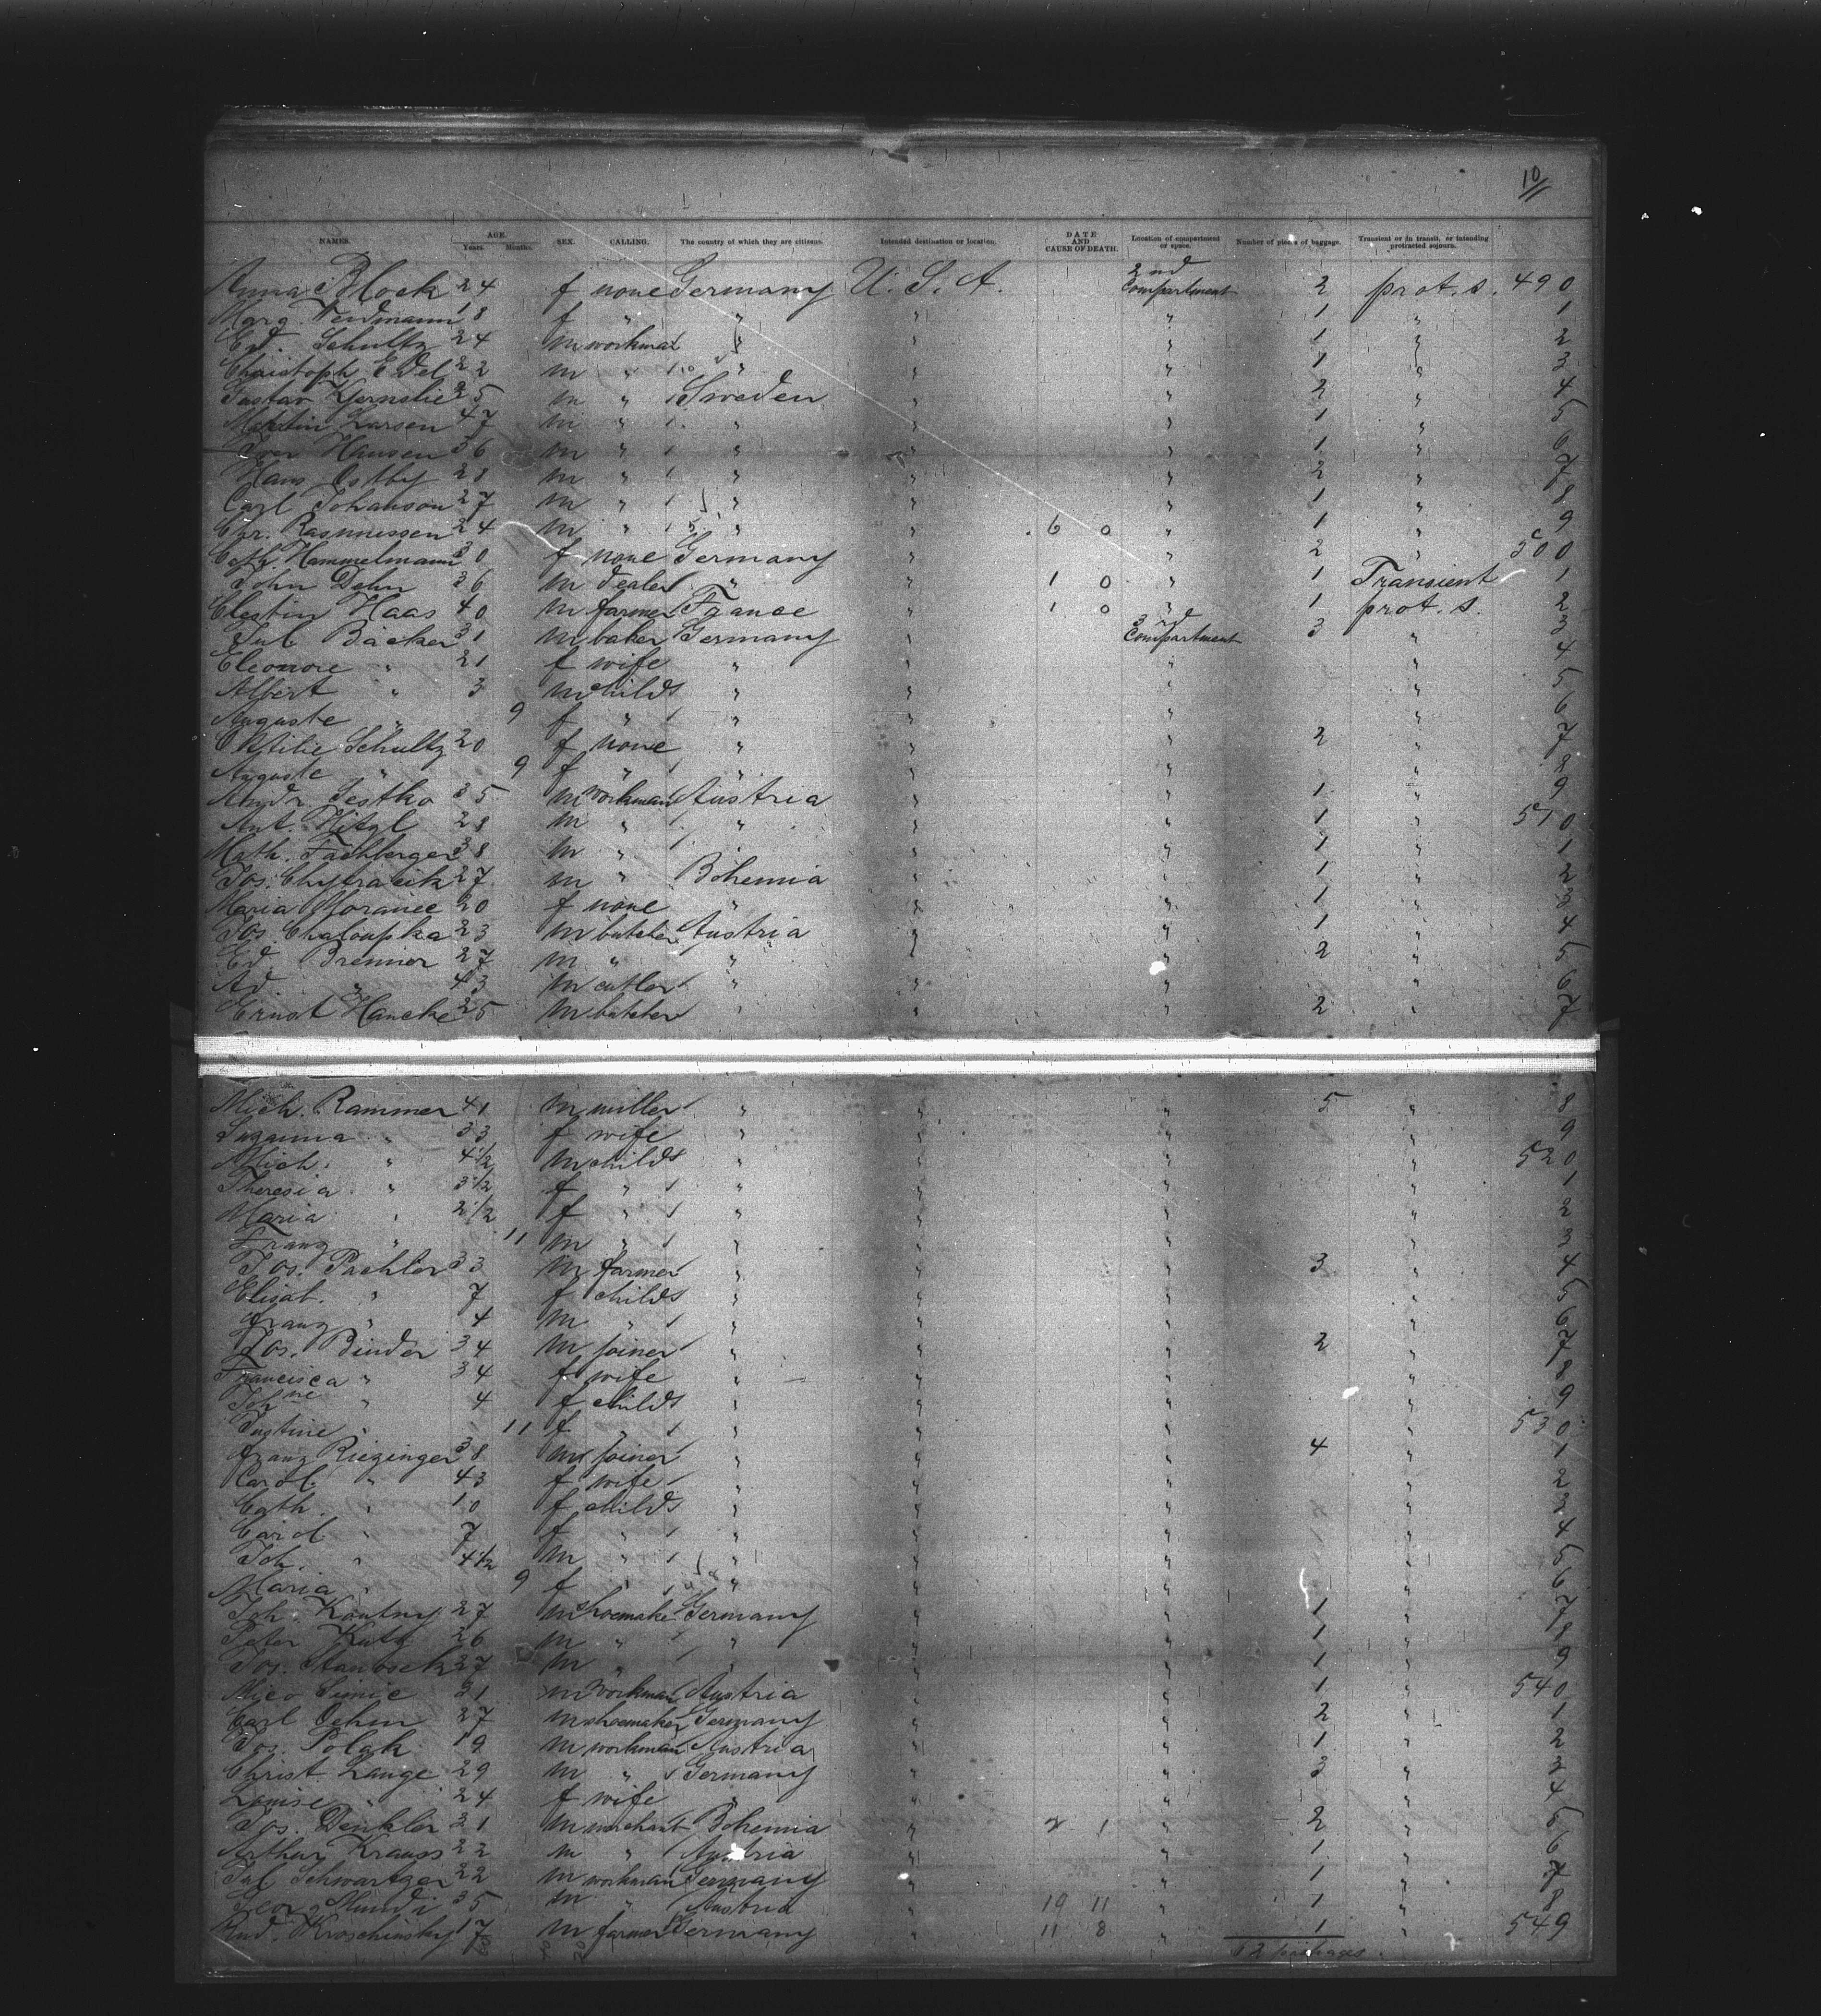 10
NAMES. AGE. Years. Months. SEX. CALLING. The country of which they are citizens. Intended destination or location. DATE AND CAUSE OF DEATH. Location of compartment or space. Number of pieces of baggage. Transient or in transit, or intending protracted sojourn.
Anna Block 24 f none Germany U. S. A. 2nd Compartment 2 prot. s. 490
Marg. 18 f " " " " 1 " 1
Ed. Schultz 24 m workman " " " 1 " 2
Christoph Edel 22 m " " " " 1 " 3
Gustav 25 m " Sweden " " 2 " 4
Martin Larsen 47 m " " " " 1 " 5
Iver Hansen 36 m " " " " 1 " 6
Hans Ostby 28 m " " " " 2 " 7
Carl Johanson 27 m " " " " 1 " 8
Chr. Rasmussen 24 m " " " 6 0 " 1 " 9
Cath. Hammelmann 30 f none Germany " " 2 " 500
John Dehn 36 m dealer " " 1 0 " 1 Transient 1
Clestin Haas 40 m farmer France " 1 0 " 1 prot. s. 2
Jul Bäcker 31 m baker Germany " 3rd Compartment 3 " 3
Eleonore " 21 f wife " " " " 4
Albert " 3 m child " " " " 5
Auguste " 9 f " " " " " 6
Ottilie Schultz 20 f none " " " 2 " 7
Auguste " 9 f " " " " " 8
Andr. Sestko 35 m workman Austria " " 1 " 9
Ant. Hitzl 28 m " " " " 1 " 510
Math. Fachberger 38 m " " " " 1 " 1
Jos. Chytracik 27 m " Bohemia " " 1 " 2
Maria Moravec 20 f none " " " 1 " 3
Jos. Chaloupka 23 m butcher Austria " " 1 " 4
Ed. Brenner 27 m " " " " 2 " 5
Ad. " 43 m cutler " " " " 6
Ernst Hancke 25 m butcher " " " 2 " 7
Mich. Rammer 41 m miller " " " 5 " 8
Susanna " 33 f wife " " " " 9
Mich. " 4 1/2 m child " " " " 520
Theresia " 3 1/2 f " " " " " 1
Maria " 2 1/2 f " " " " " 2
Franz " 11 m " " " " " 3
Jos. Pachler 33 m farmer " " " 3 " 4
Elisab. " 7 f child " " " " 5
Franz " 4 m " " " " " 6
Jos. Binder 34 m joiner " " " 2 " 7
Francisca " 34 f wife " " " " 8
Johne " 4 f child " " " " 9
Justine " 11 f " " " " " 530
Franz Riezinger 38 m joiner " " " 4 " 1
Carol. " 43 f wife " " " " 2
Cath. " 10 f child " " " " 3
Carol " 7 f " " " " " 4
Joh. " 4 1/2 m " " " " " 5
Maria " 9 f " " " " " 6
Joh. Koutny 27 m shoemaker Germany " " 1 " 7
Peter Kutz 26 m " " " " 1 " 8
Jos. 27 m " " " " 1 " 9
Mico Simic 31 m workman Austria " " 1 " 540
Carl Oehm 27 m shoemaker Germany " " 2 " 1
Jos. Polak 19 m workman Austria " " 1 " 2
Christ. Lange 29 m " Germany " " 3 " 3
Louise " 24 f wife " " " " 4
Jos. Denkler 31 m merchant Bohemia " 2 1 " 2 " 5
Arthur Krauss 22 m " Austria " " 1 " 6
Jul Schwartzer 22 m workman Germany " " 1 " 7
Georg Mundi 35 m " Austria " 19 11 " 1 " 8
Rud. Kroschinsky 17 m farmer Germany " 11 8 " 1 " 549